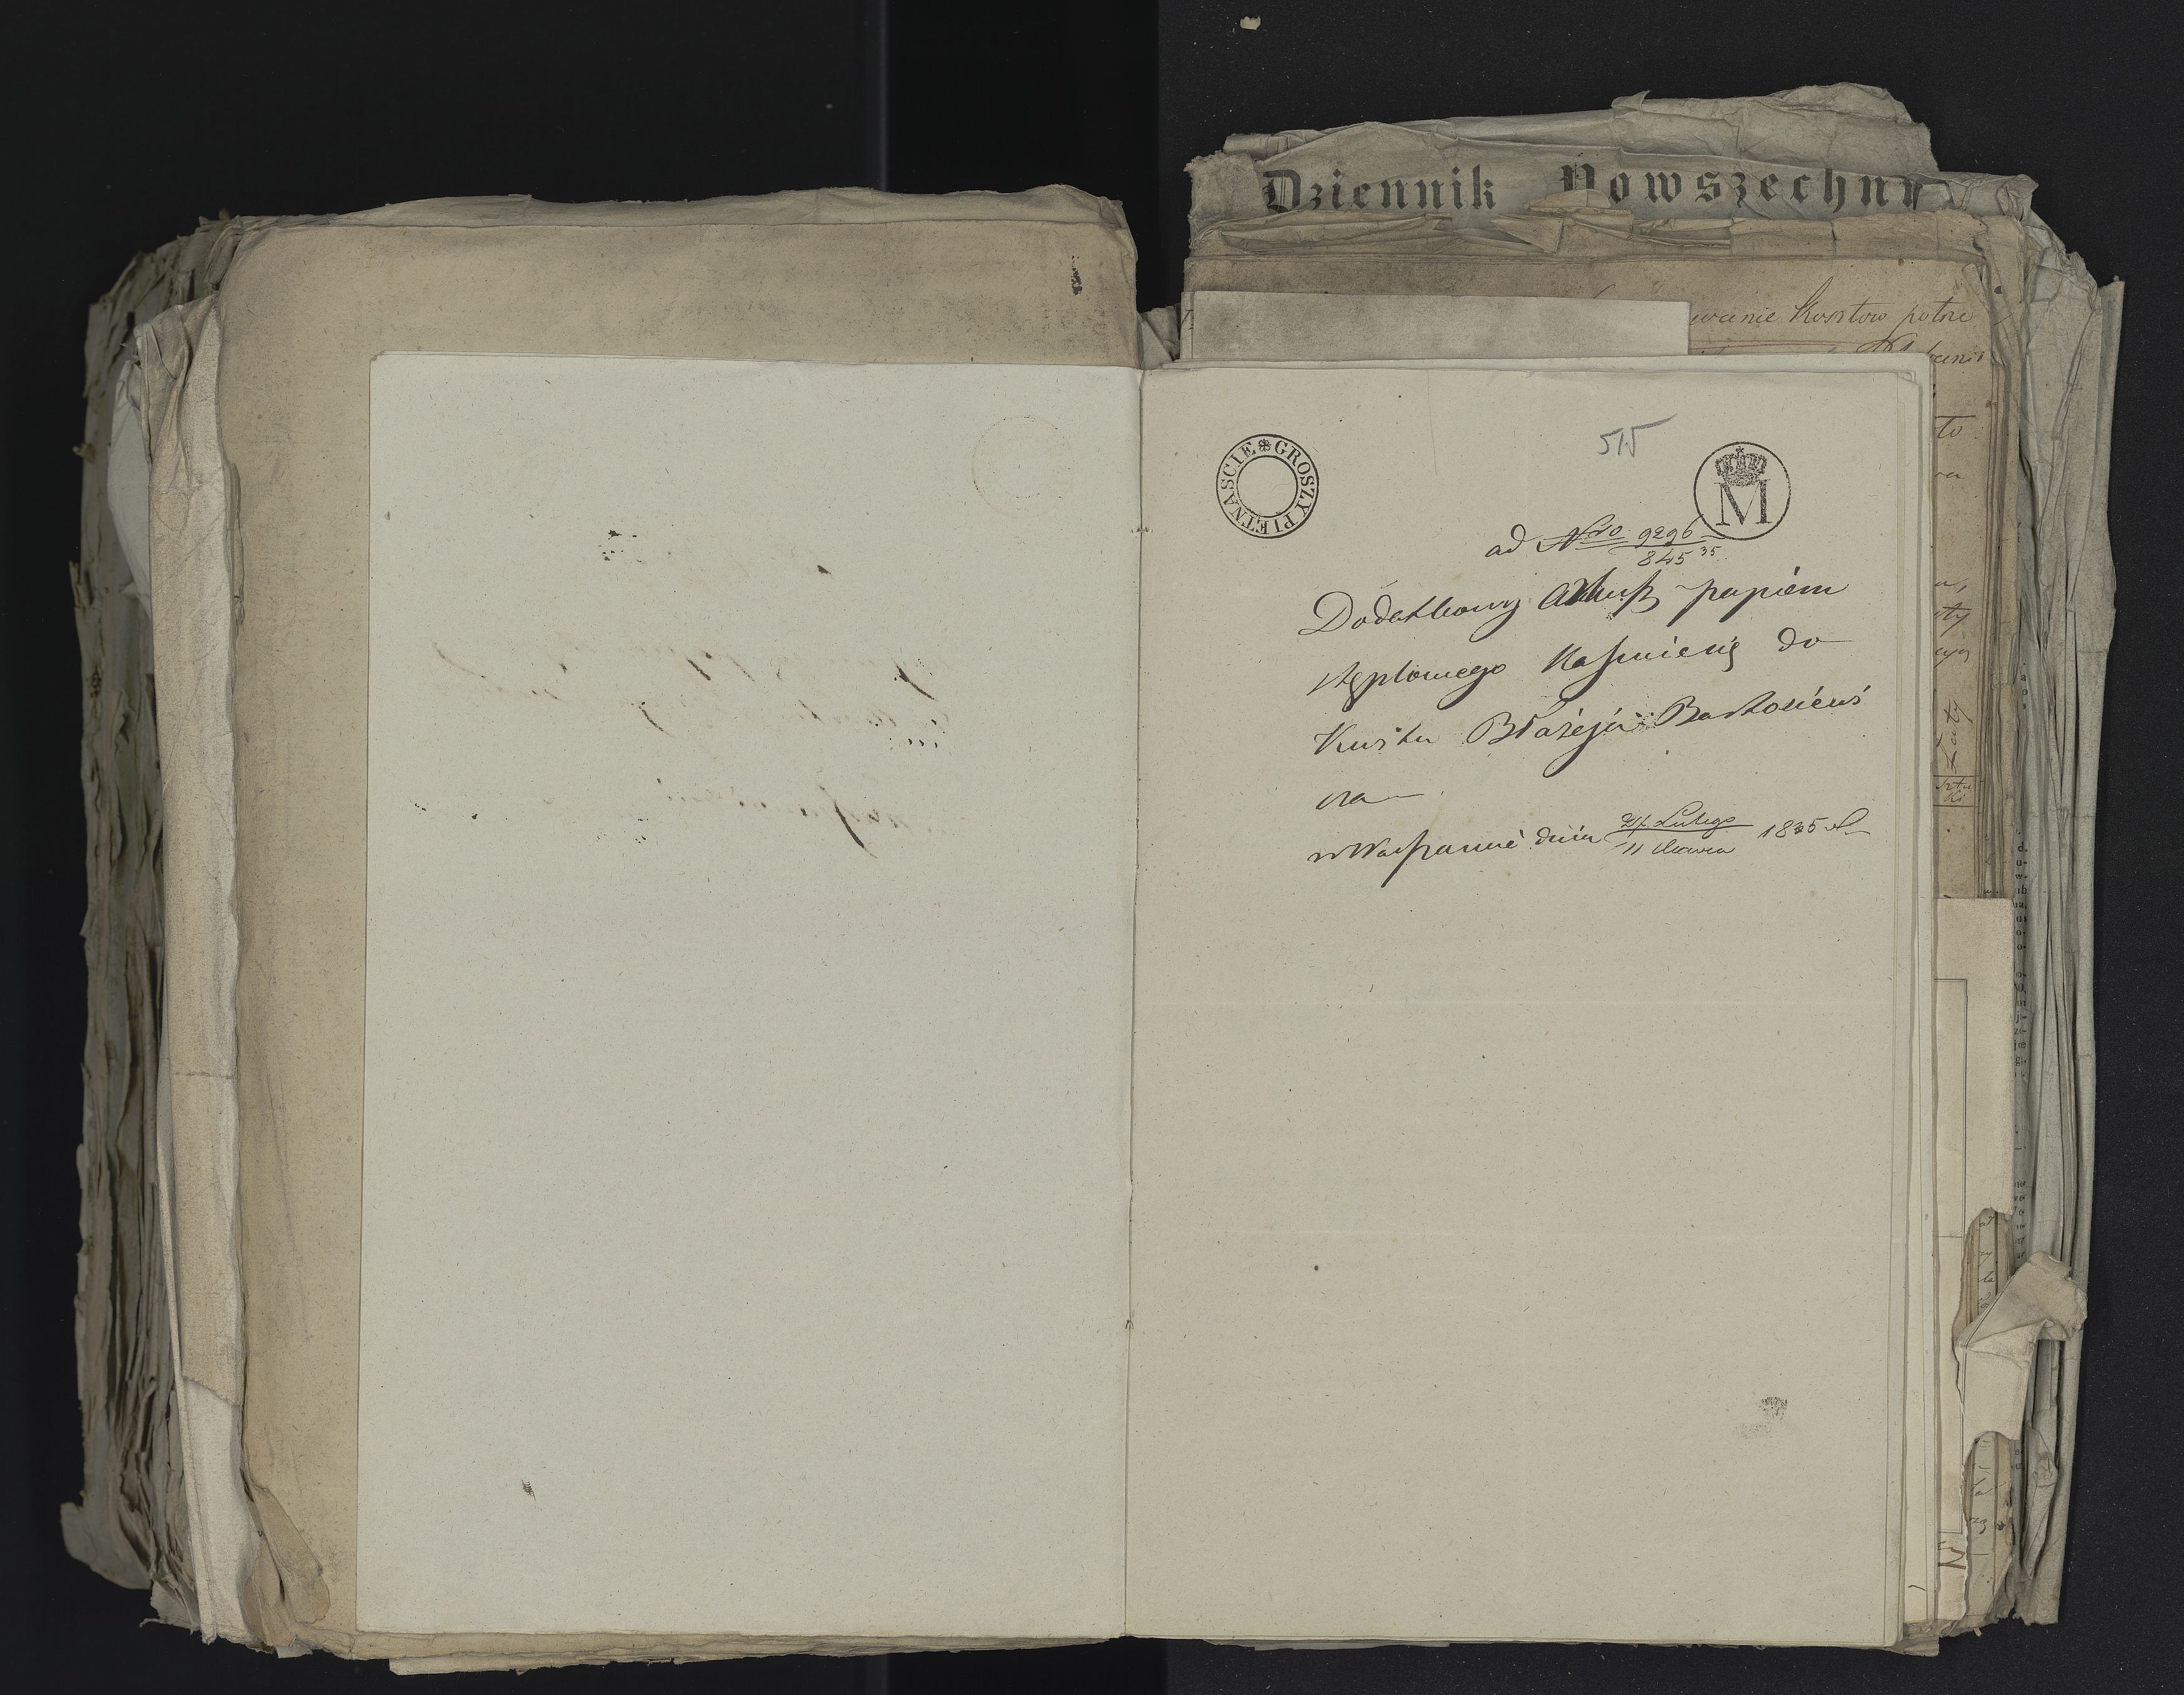 Dziennik Powszechny
wanie Kosztow potrz
515
GROSZY PIETNASCIE
M
ad Nro 9296
845 35
Dodatkowy Arkusz papieru
stęplowego Kassuie się do
Kwitu Błażeja Bartosiewi
cza
w Warszawie dnia 27 Lutego 1835 r
11 Marca